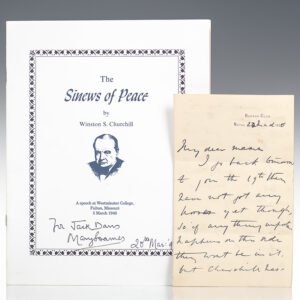 The
Sinews of Peace
by
Winston S. Churchill
A speech at Westminster College,
Fulton, Missouri
5 March 1946
For Jack Davis
Mary Soames
20th Mar
My dear mama
I go back tomorrow
to join the 19th they
have not got any
horses yet though,
so if any thing
happens on this side
they won't be in it,
but Churchill has